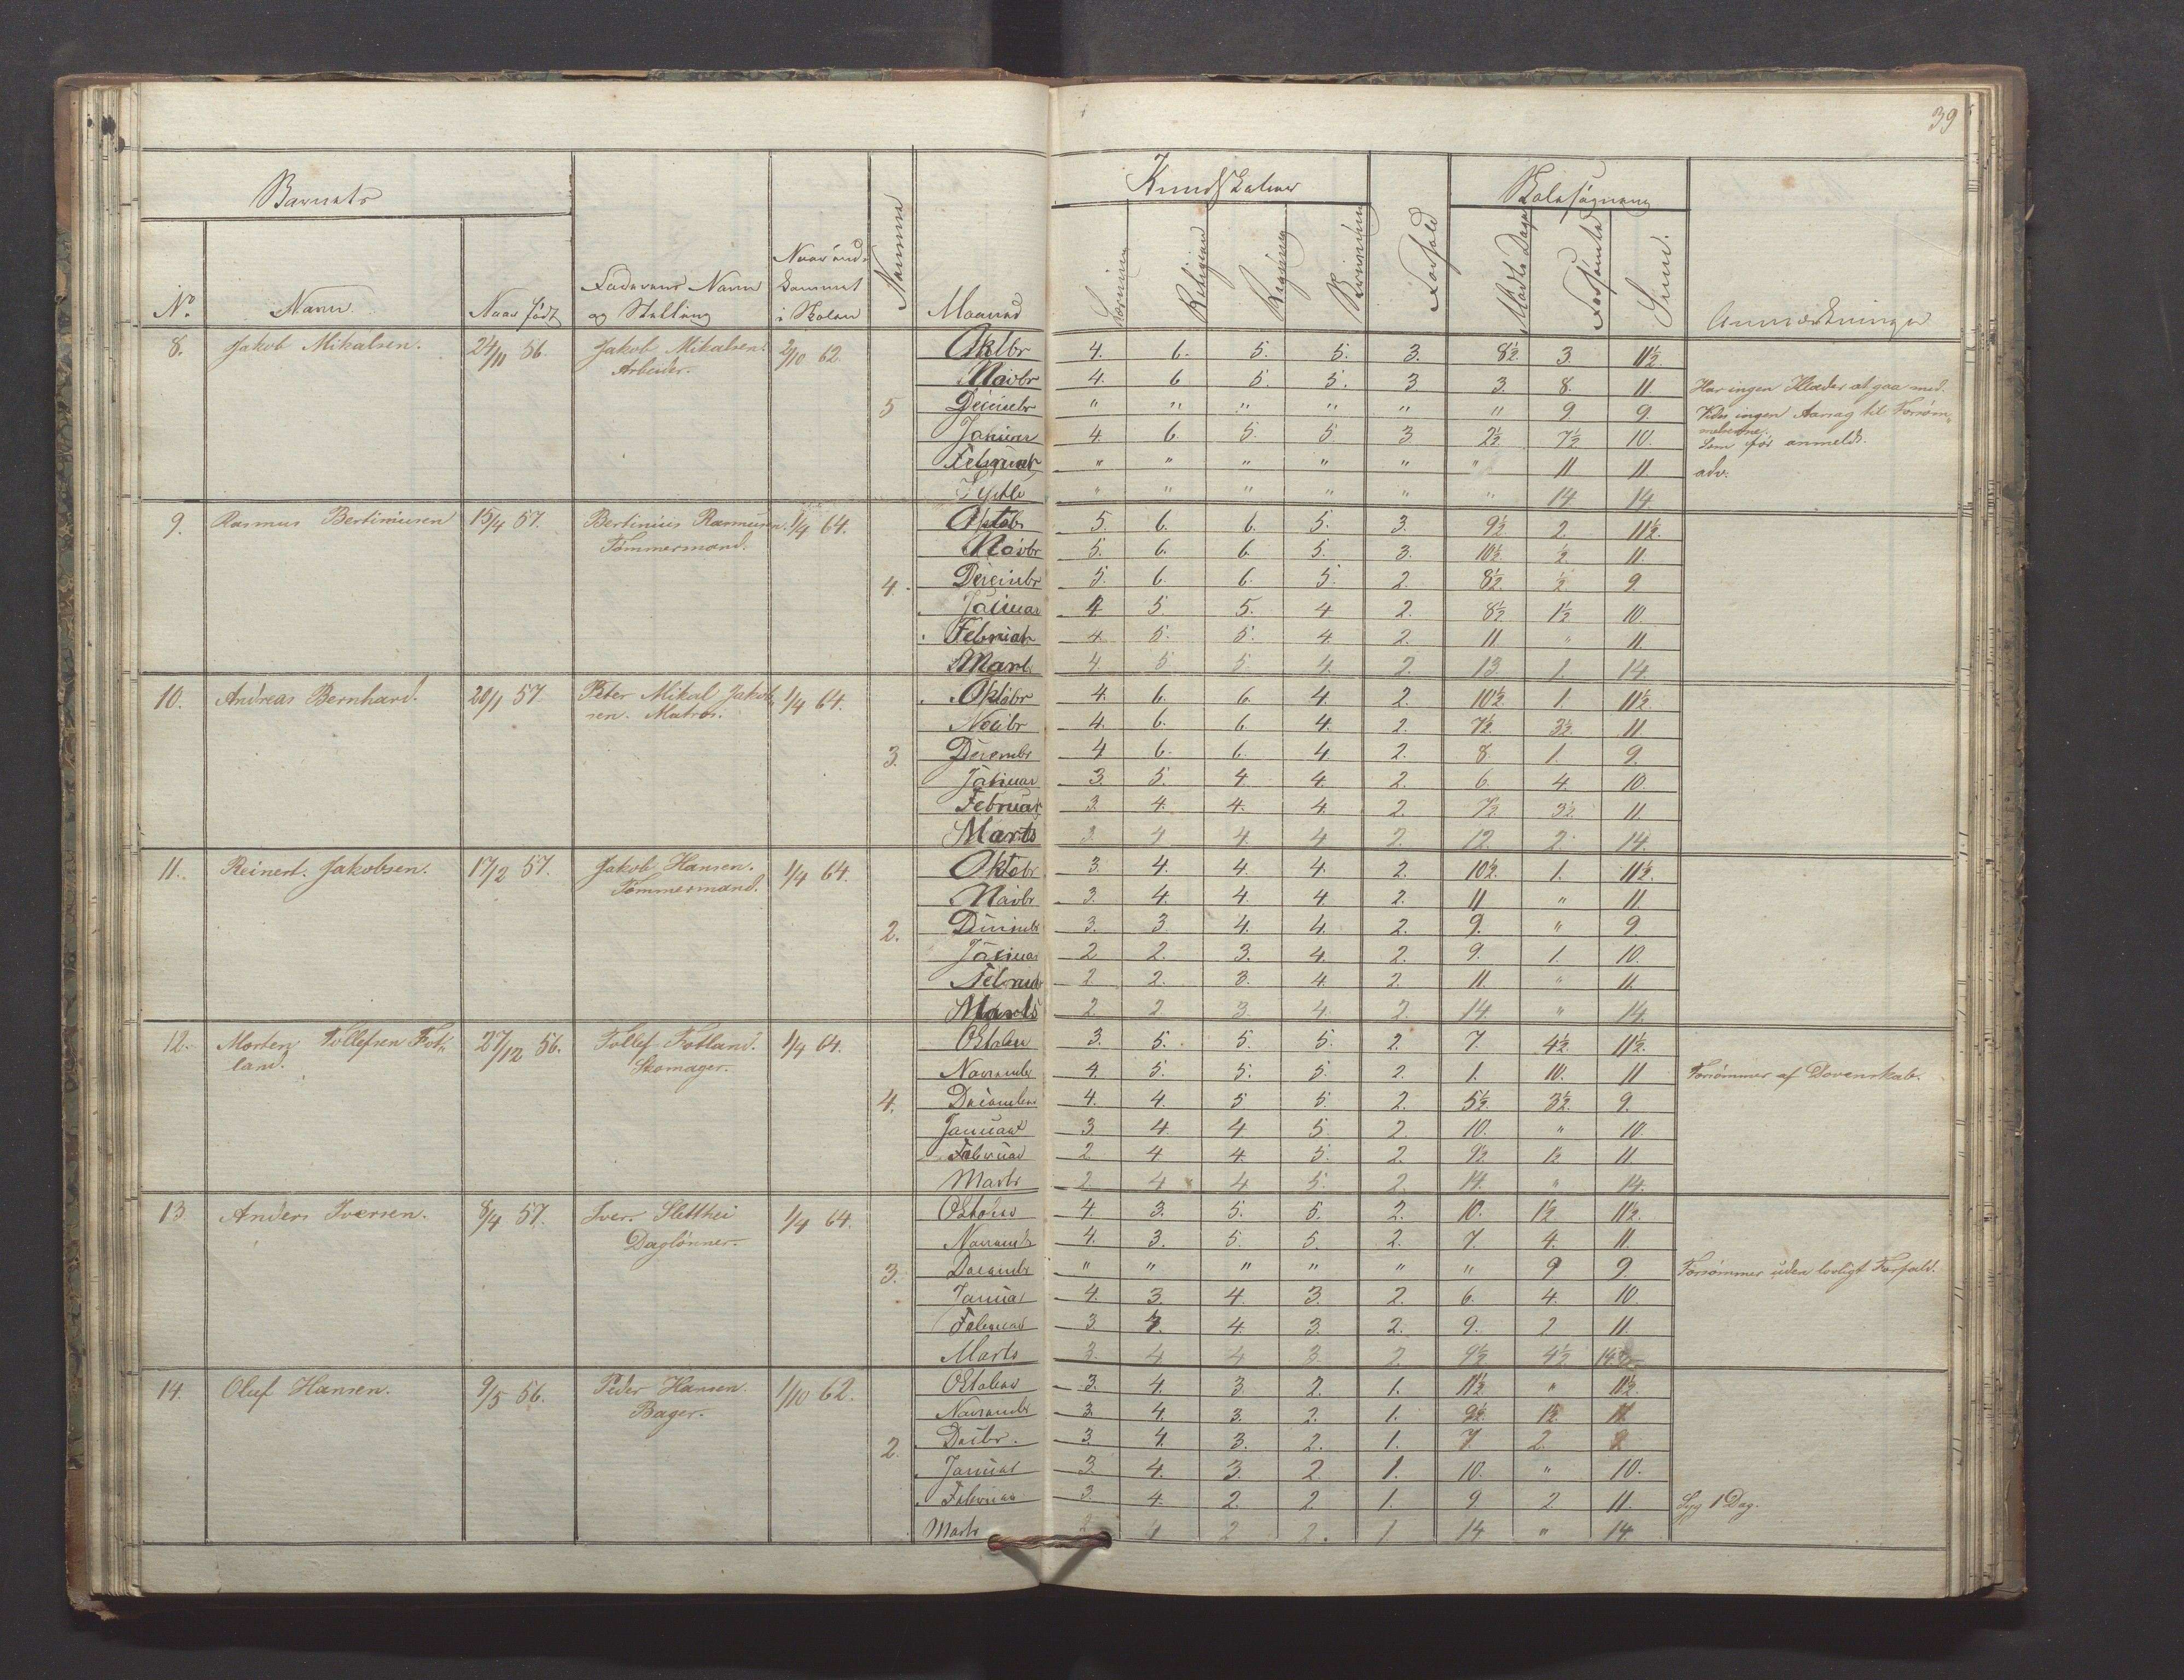 39
Barnets
Kundskaber
Skolesøgning
No.
Navn.
Naar født
Faderens Navn
og Stilling
Naar ind-
kommet
i Skolen
Maaned
Religion
Regning
Skrivning
Forhold
Mødte Dage
Forsømte
Sum.
Anmærkninger
8. Jakob Mikalsen. 24/11 56. Jakob Mikalsen. 2/10 62. Oktbr 4. 6. 5. 5. 3. 8½. 3. 11½.
Arbeider.
Novbr 4. 6 5. 5. 3 3. 8. 11. Har ingen Klæder at gaa med.
5 Decembr " " " " " " 9 9. Vides ingen Aarsag til Forsøm-
melserne.
Januar 4. 6. 5. 5. 3 2½ 7½ 10. Som før anmeldt.
Februar " " " " " " 11 11. adv.
" " " " " " 14 14
9. Rasmus Bertiniusen 15/4 57. Bertinius Rasmusen. 1/4 64. Oktobr 5. 6. 6. 5. 3. 9½ 2. 11½.
Tømmermand.
Novbr 5. 6. 6. 5. 3. 10½ ½ 11.
4. Decembr 5. 6. 6. 5. 2. 8½. ½ 9.
Januar 4 5. 5. 4 2. 8½ 1½ 10.
Februar 4 5. 5. 4. 2. 11 " 11.
Marts 4. 5 5. 4. 2. 13 1. 14.
10. Andreas Bernhard. 20/1 57. Peter Mikal Jakob- 1/4 64. Oktobr 4. 6. 6. 4. 2. 10½. 1. 11½.
sen. Matros.
Novbr 4. 6. 6. 4. 2. 7½. 3½. 11.
3. Decembr 4 6. 6. 4 2. 8. 1. 9.
Januar 3. 5. 4 4. 2. 6. 4. 10.
Februar 3. 4. 4. 4. 2. 7½. 3½. 11.
Marts 3. 4 4. 4 2. 12. 2. 14.
11. Reinert Jakobsen. 17/2 57. Jakob Hansen. 1/4 64. Oktobr 3. 4. 4. 4. 2. 10½. 1. 11½.
Tømmermand.
Novbr 3. 4. 4. 4 2. 11 " 11.
2. Decembr 3. 3 4. 4. 2. 9. " 9.
Januar 2 2. 3. 4. 2. 9. 1. 10.
Februar 2 2. 3. 4. 2. 11. " 11.
Marts 2 2 3. 4. 2 14. " 14.
12. Morten Tollefsen Fot- 27/12 56. Tollef Fotland. 1/4 64. Oktober 3. 5. 5. 5. 2. 7. 4½. 11½.
land. Skomager.
November 4. 5. 5. 5. 2. 1. 10. 11 Forsømmer af Dovenskab.
4. December 4. 4. 5 5. 2. 5½. 3½. 9.
Januar 3 4. 4 5. 2. 10. " 10.
Februar 2 4 4. 5. 2. 9½ 1½ 11.
Marts 2. 4 4 5. 2. 14. " 14.
13. Anders Iversen. 8/4 57. Iver Sletthei 1/4 64. Oktober 4. 3. 5. 5. 2. 10. 1½ 11½.
Daglønner.
Novembr 4. 3. 5. 5. 2. 7. 4. 11.
3. Decembr " " " " " " 9 9. Forsømmer uden lovligt Forfald.
Januar 4. 3. 4. 3. 2. 6. 4. 10.
Februar 3. 4. 3. 2. 9. 2 11.
Marts 3. 4 4 3. 2. 9½ 4½ 14
14. Oluf Hansen. 9/5 56. Peder Hansen. 1/10 62. Oktober 3. 4. 3. 2. 1. 11½. " 11½.
Bager.
Novembr 3. 4. 3. 2. 1. 9½. 1½. 11.
2. Decbr. 3. 4. 3. 2. 1. 7. 2. 9
Januar 3. 4. 3. 2 1. 10. " 10.
Februar 3. 4. 2. 2 1. 9. 2 11. Syg 1 Dag.
Marts 2 4 2 2. 1 14 " 14.